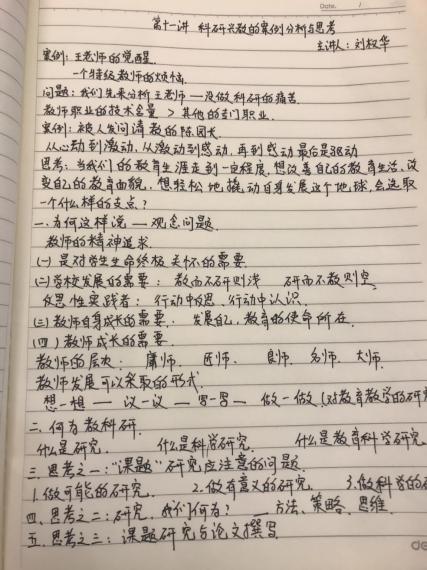 Date. /
第十一讲 科研兴教的案例分析与思考
主讲人：刘权华
案例：王老师的觉醒.
一个特级教师的烦恼.
问题：我们先来分析王老师——没做科研的痛苦.
教师职业的技术含量 > 其他的专门职业.
案例：被人发问请教的陈园长.
从心动到激动，从激动到感动，再到感动最后是驱动
思考：当我们的教育生涯走到一定程度，想改善自己的教育生活，改
变自己的教育面貌，想轻松地撬动自身发展这个地球，会选取
一个什么样的支点？
一. 为何这样说——观念问题.
教师的精神追求.
(一) 是对学生生命终极关怀的需要.
(二) 学校发展的需要：教而不研则浅 研而不教则空
反思性实践者：行动中反思、行动中认识.
(三) 教师自身成长的需要：发展自己，教育的使命所在.
(四) 教师成长的需要
教师的层次：庸师. 匠师. 良师. 名师. 大师.
教师发展可以采取的形式.
想一想——议一议——写一写——做一做(对教育教学的研究
二. 何为教科研.
什么是研究. 什么是科学研究. 什么是教育科学研究
三. 思考之一："课题"研究应注意的问题.
1.做可能的研究. 2.做有意义的研究. 3.做科学的
四. 思考之二：研究，我们何为？——方法、策略、思维.
五. 思考之三：课题研究与论文撰写
de